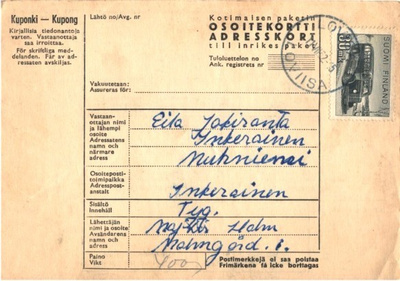 Kuponki — Kupong
Kirjallisia tiedonantoja
varten. Vastaanottaja
saa irroittaa.
För skriftliga med-
delanden. Får av ad-
ressaten avskiljas.
Lähtö :no/Avg. nr
Kotimaisen paketin
OSOITEKORTTI
ADRESSKORT
till inrikes paket
Tuloluettelon no
Ank. registrets nr
LOVIISA
SUOMI FINLAND
Vakuutetaan:
Assureras för:
Vastaan-
ottajan nimi
ja lähempi
osoite
Adressatens
namn och
närmare
adress
Eila Jokiranta
Inkeroinen
Osoiteposti-
toimipaikka
Adresspost-
anstalt
Inkeroinen
Sisältö
Innehåll
Tyg.
Lähettäjän
nimi ja osoite
Avsändarens
namn och
adress
Holm
Malmgård.
Paino
Vikt
400
Postimerkkejä ei saa poistaa
Frimärkena få icke borttagas